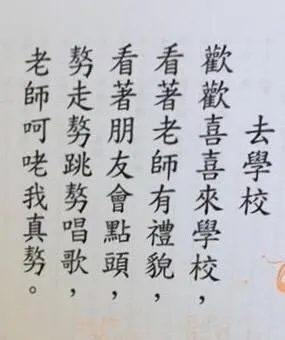 去學校
歡歡喜喜來學校，
看著老師有禮貌，
看著朋友會點頭，
𠢕走𠢕跳𠢕唱歌，
老師呵咾我真𠢕。